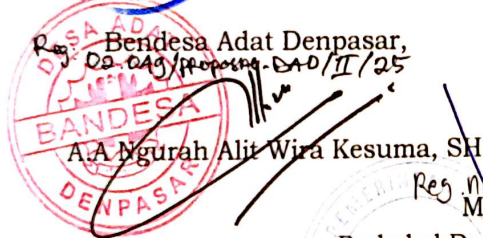 Bendesa Adat Denpasar,
Reg: 02.049/proposal-DAD/II/25
DESA ADAT
BANDESA
DENPASAR
A.A Ngurah Alit Wira Kesuma, SH
Reg.
M